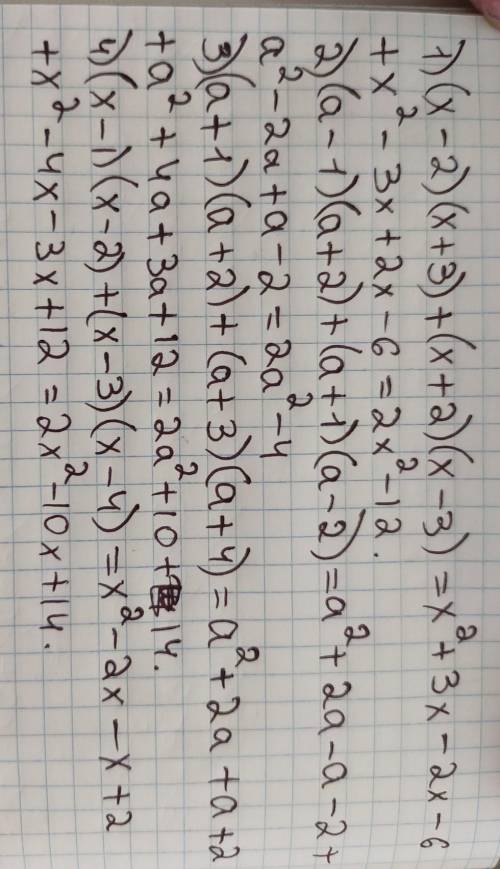 1) (x-2)(x+3)+(x+2)(x-3)=x²+3x-2x-6
+x²-3x+2x-6=2x²-12.
2) (a-1)(a+2)+(a+1)(a-2)=a²+2a-a-2+
a²-2a+a-2=2a²-4
3) (a+1)(a+2)+(a+3)(a+4)=a²+2a+a+2
+a²+4a+3a+12=2a²+10+14.
4) (x-1)(x-2)+(x-3)(x-4)=x²-2x-x+2
+x²-4x-3x+12=2x²-10x+14.